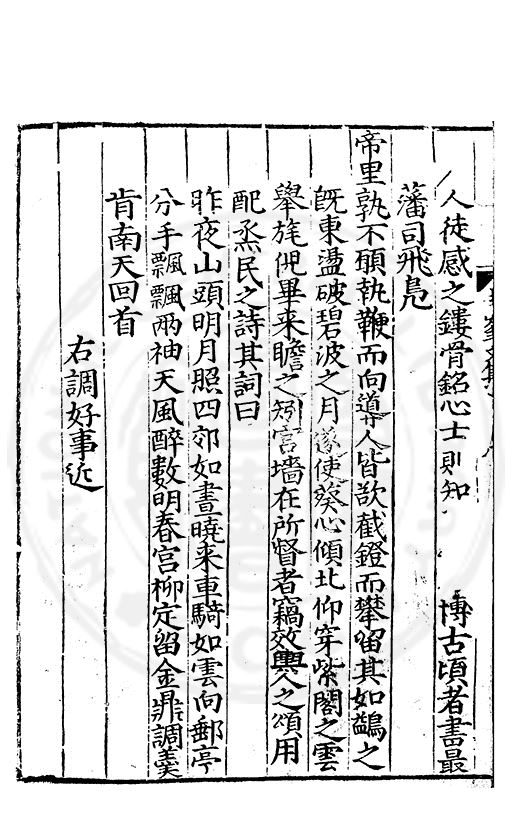 人徒感之鏤骨銘心士則知　博古頃者書最
藩司飛舃
帝里孰不願執鞭而向導人皆欲截鐙而攀留其如鷁之
旣東盪破碧波之月遂使葵心傾北仰穿紫閣之雲
舉旄倪畢來瞻之矧宮墻在所督者竊效輿人之頌用
配烝民之詩其詞曰
昨夜山頭明月照四郊如晝曉来車騎如雲向郵亭
分手飄飄兩袖天風醉數明春宮柳定留金鼎調羹
肯南天回首
右調好事近